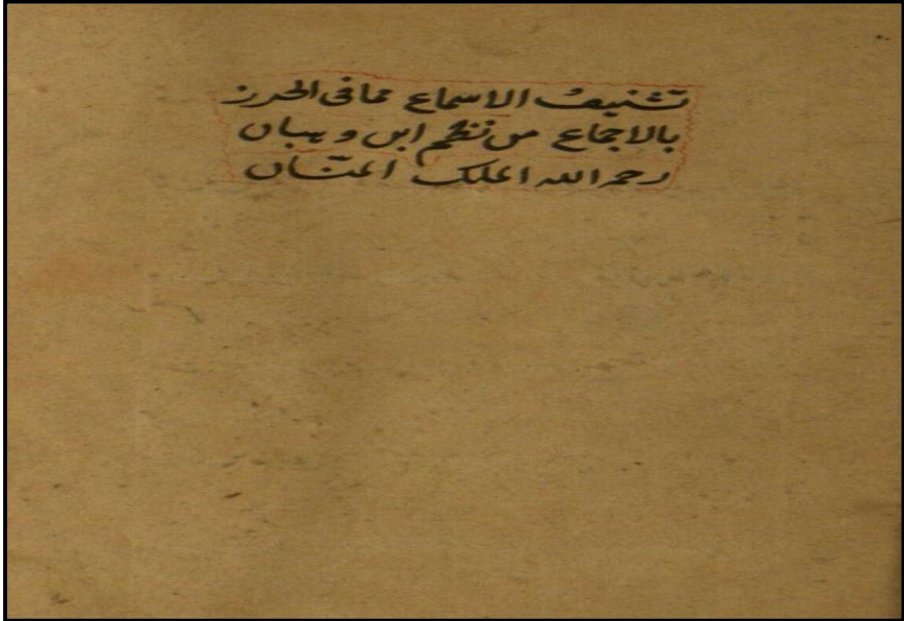 تشنيف الاسماع مما فى الحرز
بالاجماع من نظم ابن وهبان
رحمه الله الملك المنّان